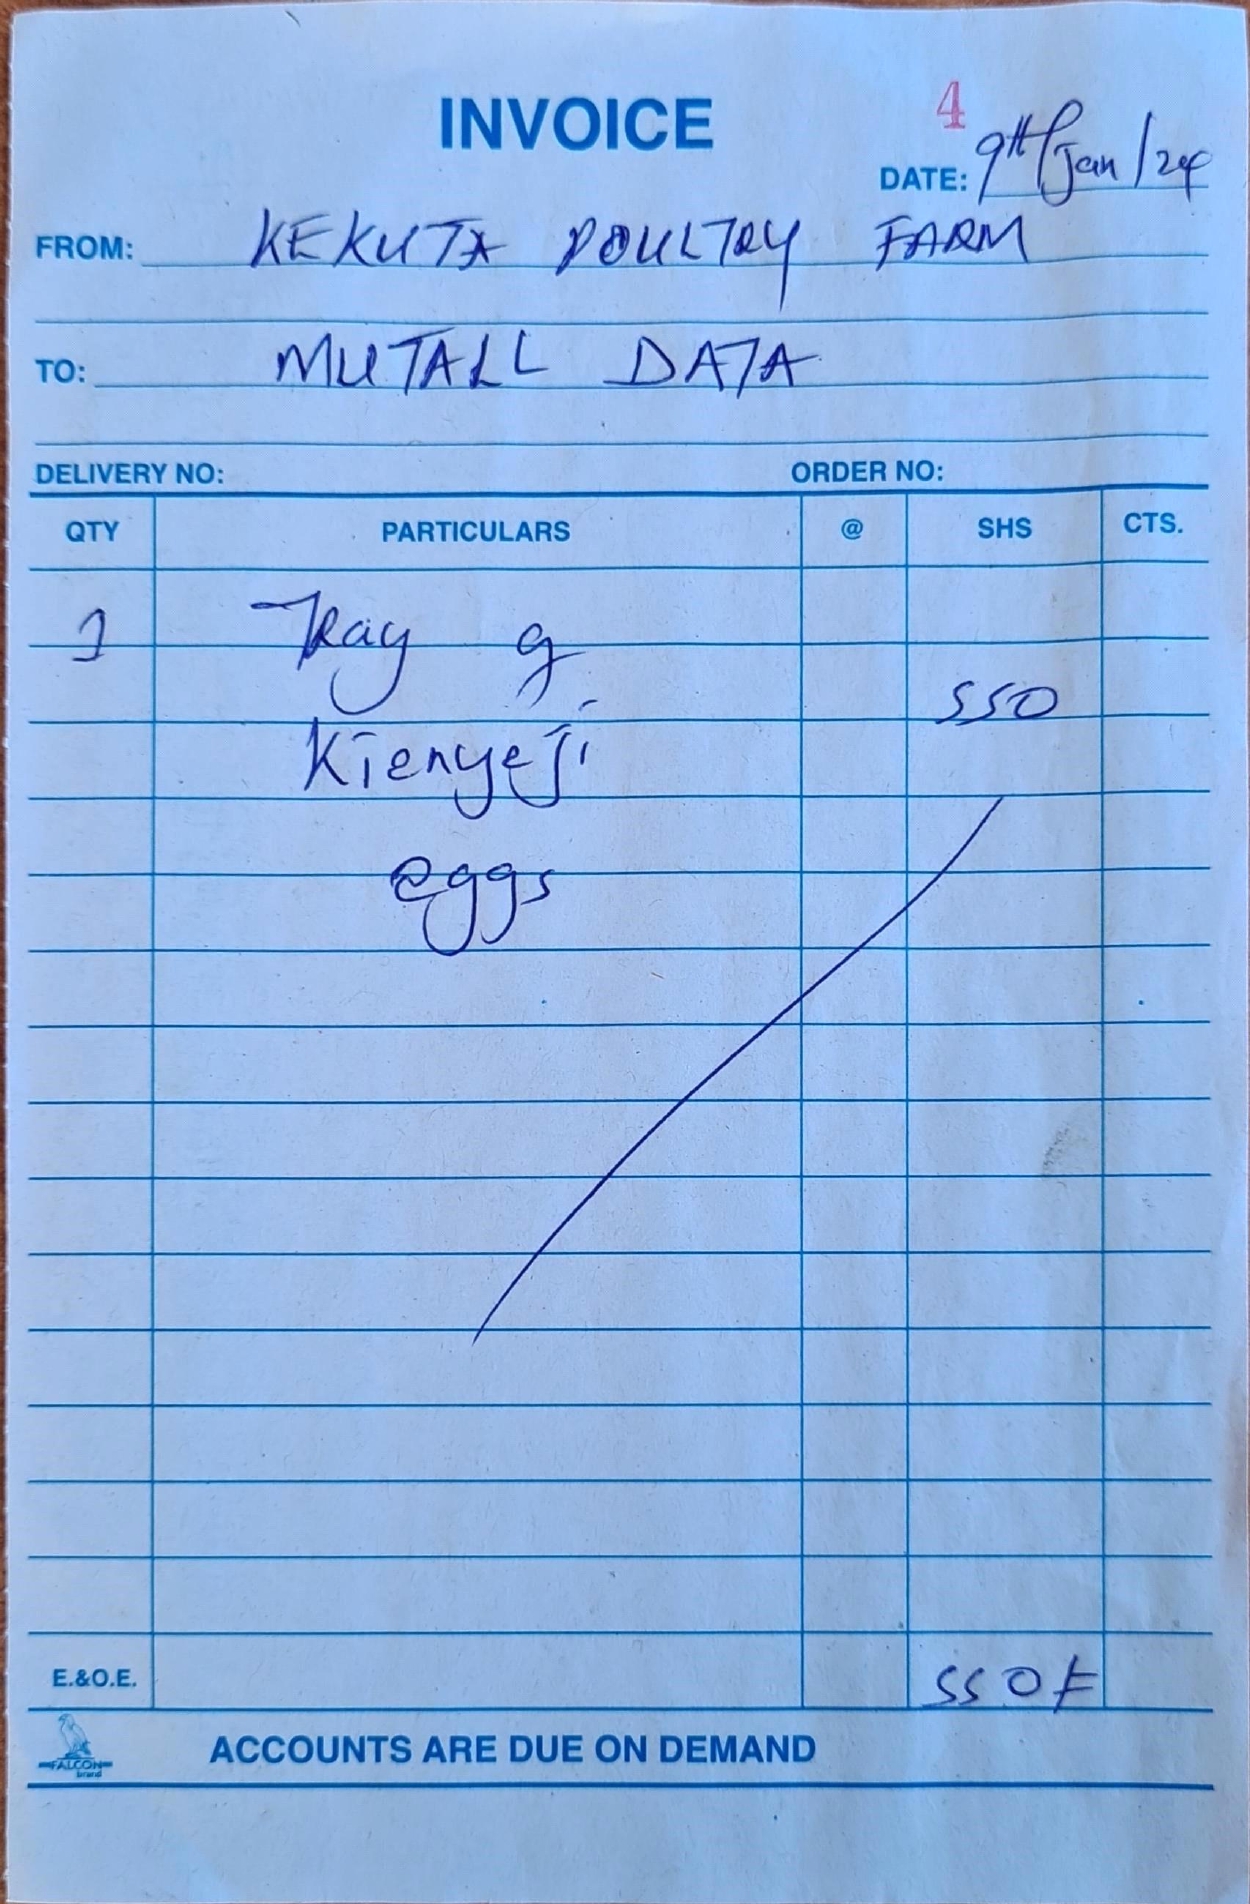 INVOICE
4
DATE: 9th/Jan/24
FROM: KEKUTA POULTRY FARM
TO: MUTALL DATA
DELIVERY NO: ORDER NO:
QTY PARTICULARS @ SHS CTS.
1 Tray of
550
Kienyeji
eggs
E.&O.E. 550/=
FALCON
brand
ACCOUNTS ARE DUE ON DEMAND